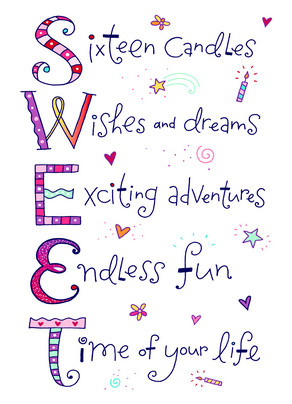 Sixteen Candles
Wishes and dreams
Exciting adventures
Endless fun
Time of your life